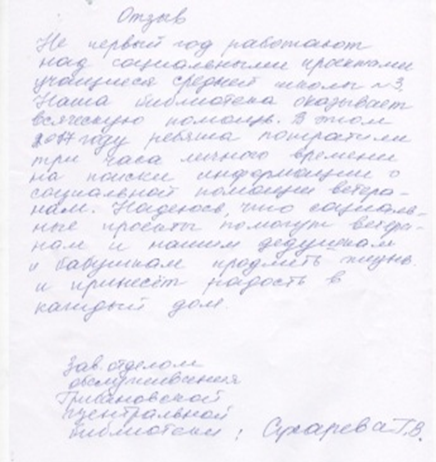 Отзыв
Не первый год работают
над социальными проектами
учащиеся средней школы №3.
Наша библиотека оказывает
всяческую помощь. В этом
2017 году ребята потратили
три часа личного времени
на поиски информации о
социальной помощи ветера-
нам. Надеюсь, что социаль-
ные проекты помогут ветера-
нам и нашим дедушкам
и бабушкам продлить жизнь
и принесёт радость в
каждый дом.
Зав. отделом
обслуживания
Грибановской
центральной
библиотеки: Сухарева Т.В.